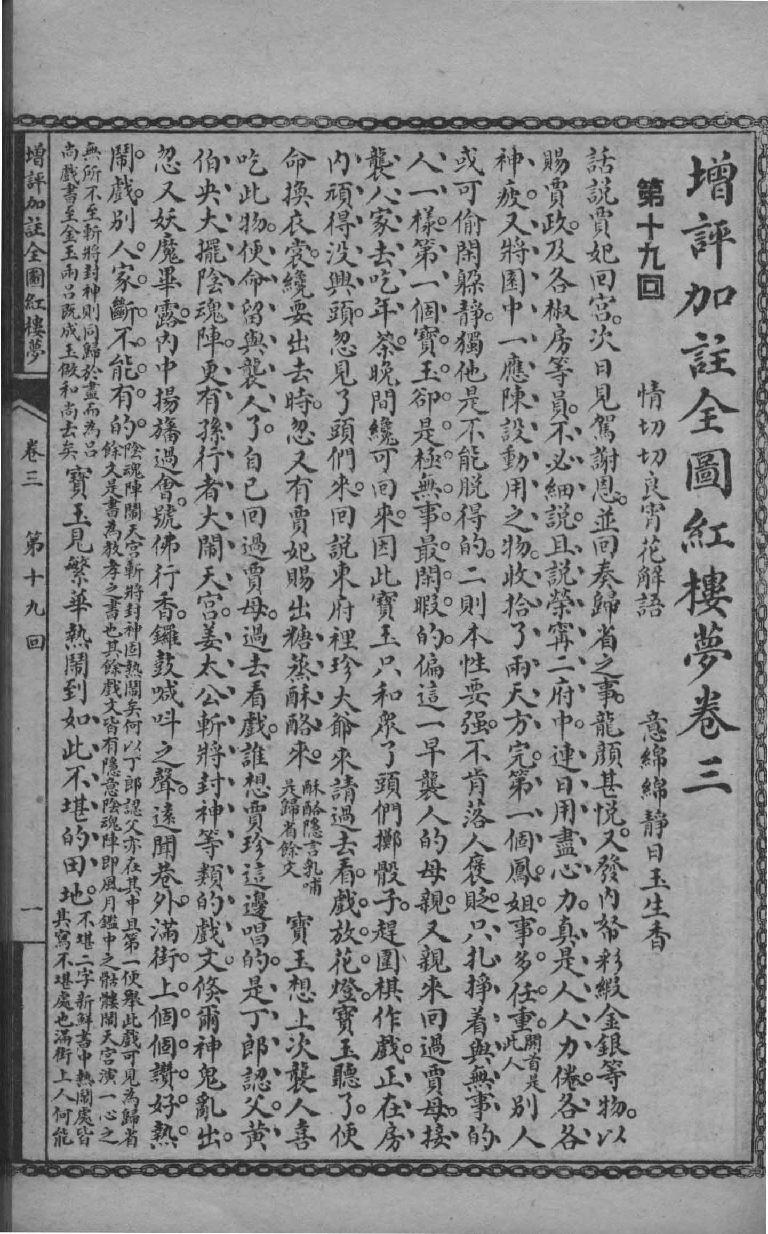 增評加註全圖紅樓夢卷三
第十九回
情切切良宵花解語 意綿綿靜日玉生香
話說賈妃回宮次日見駕謝恩並回奏歸省之事龍顏甚悅又發內帑彩緞金銀等物以
賜賈政及各椒房等員不必細說且說榮寧二府中連日用盡心力真是人人力倦各各
神疲又將園中一應陳設動用之物收拾了兩天方完第一個鳳姐事多任重開首是此人別人
或可偷閑躲靜獨他是不能脫得的二則本性要强不肯落人褒貶只扎掙着與無事的
人一樣第一個寶玉卻是極無事最閑暇的偏這一早襲人的母親又親來回過賈母接
襲人家去吃年茶晚間纔可回來因此寶玉只和眾了頭們擲骰子趕圍棋作戲正在房
內頑得没興頭忽見了頭們來回說東府裡珍大爺來請過去看戲放花燈寶玉聽了便
命換衣裳纔要出去時忽又有賈妃賜出糖蒸酥酪來酥酪隱言乳哺是歸省餘文寶玉想上次襲人喜
吃此物便命留與襲人了自已回過賈母過去看戲誰想賈珍這邊唱的是丁郎認父黃
伯央大擺陰魂陣更有孫行者大鬧天宮姜太公斬將封神等類的戲文倏爾神鬼亂出
忽又妖魔畢露內中揚旛過會號佛行香鑼鼓喊呌之聲遠聞巷外滿街上個個讚好熱
鬧戲别人家斷不能有的陰魂陣鬧天宮斬將封神固熱鬧矣何以丁郎認父亦在其中且第一便舉此戲可見為歸省
餘文是書為教孝之書也其餘戲文皆有隱意陰魂陣即風月鑑中之骷髏鬧天宮演一心之
無所不至斬將封神則同歸於盡而為呂
尚戲書至金玉兩呂既成玉做和尚去矣寶玉見繁華熱鬧到如此不堪的田地不堪二字新鮮書中熱鬧處皆
其寫不堪處也滿街上人何能
增評加註全圖紅樓夢 卷三 第十九回 一